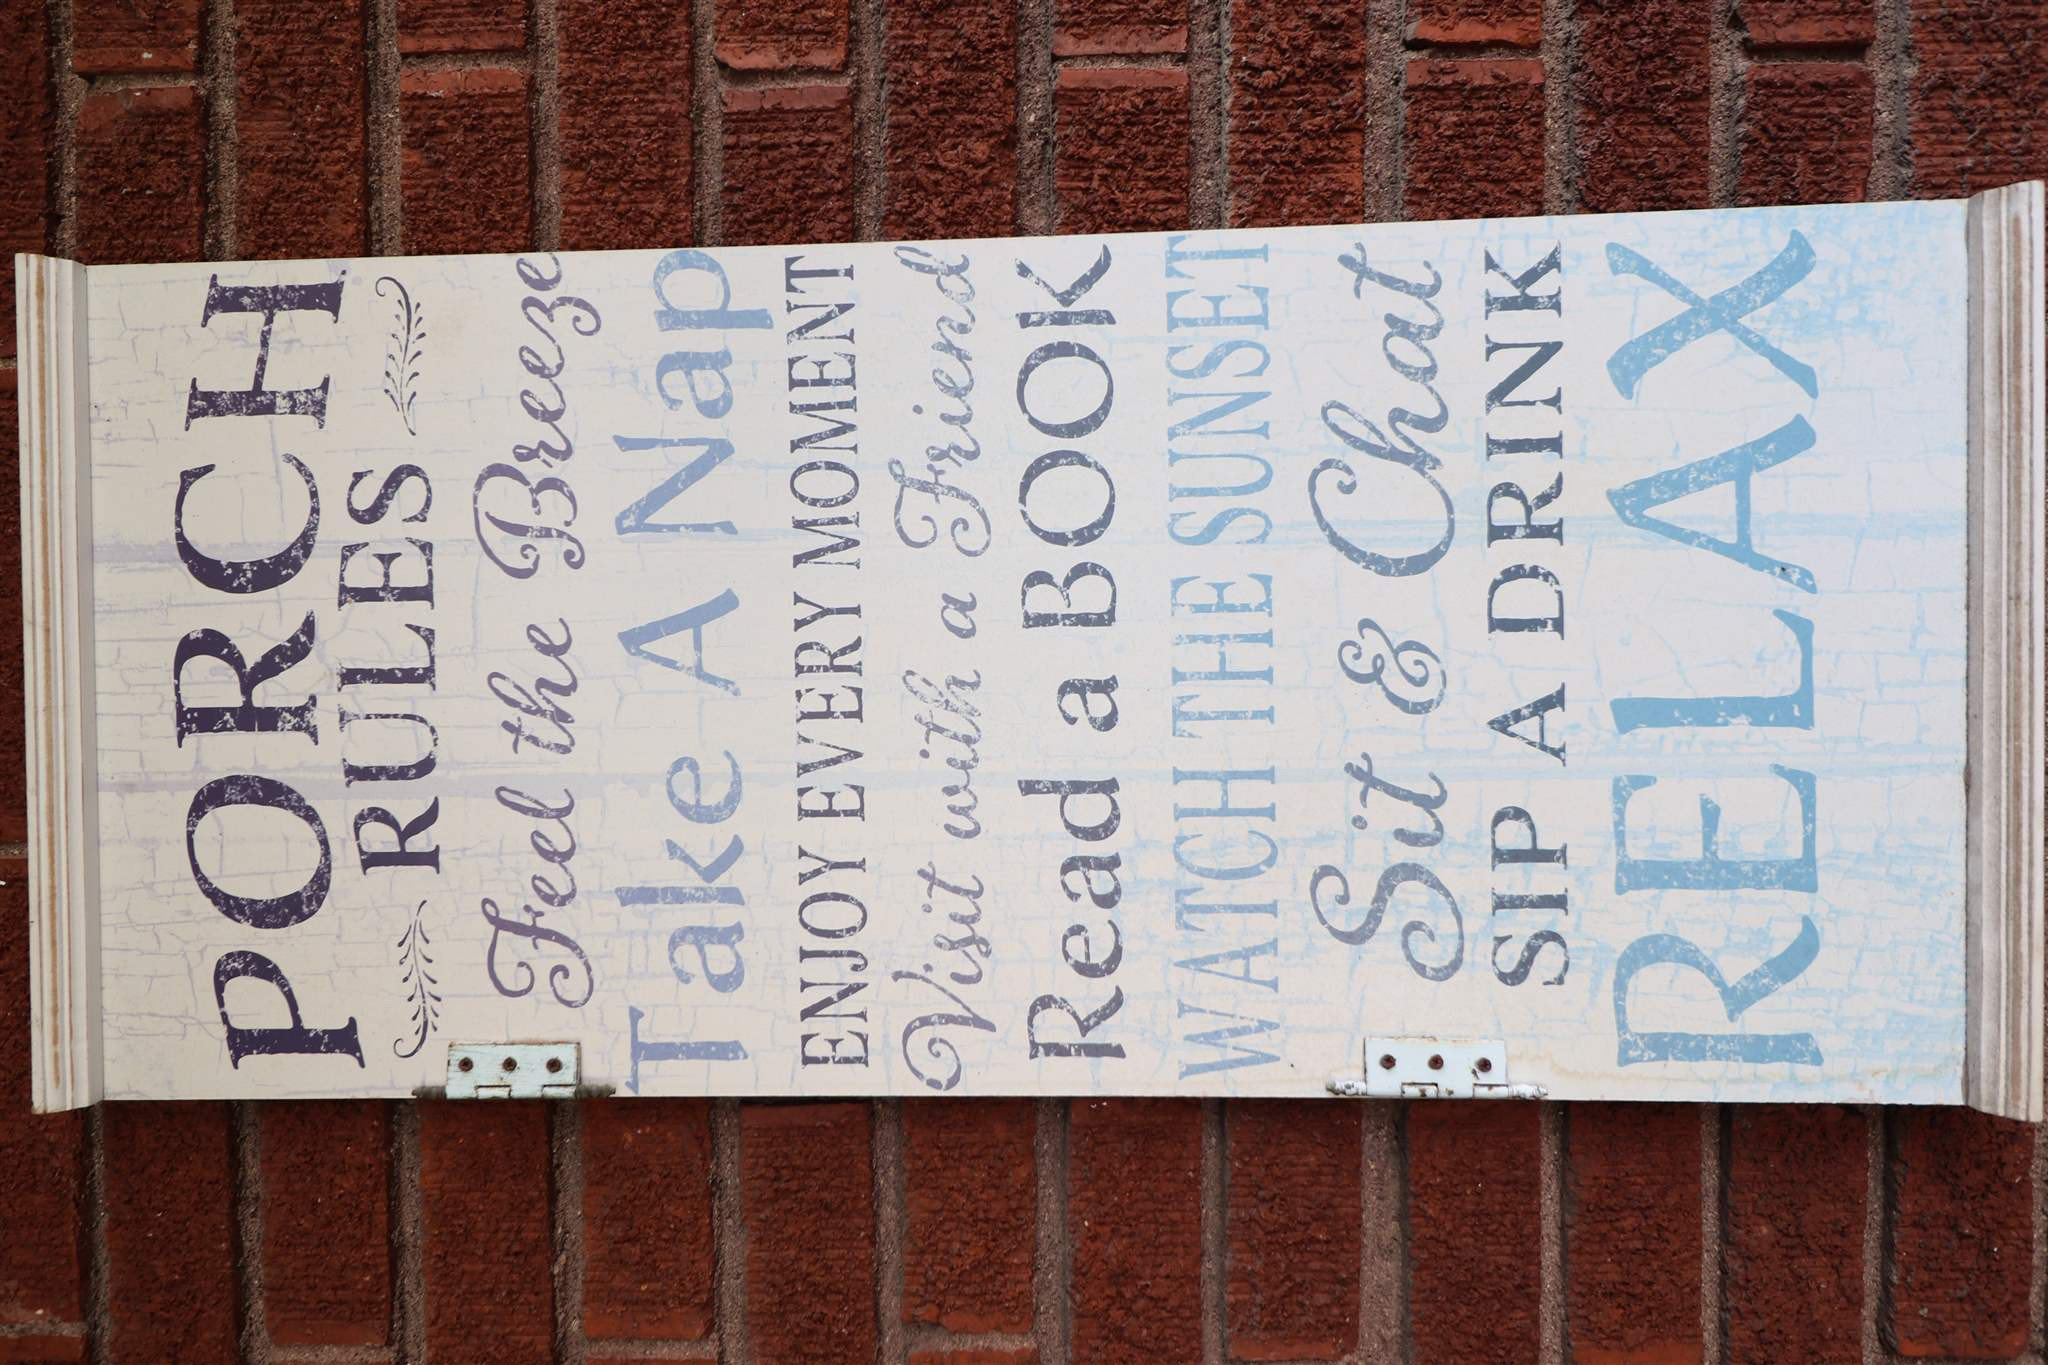 PORCH
RULES
Feel the Breeze
Take A Nap
ENJOY EVERY MOMENT
Visit with a Friend
Read a BOOK
WATCH THE SUNSET
Sit & Chat
SIP A DRINK
RELAX